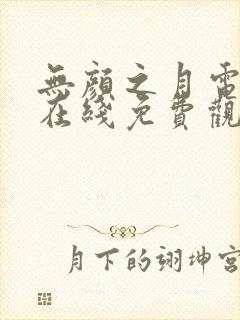 無顏之月電
在綫免費觀
月下的翊坤宮